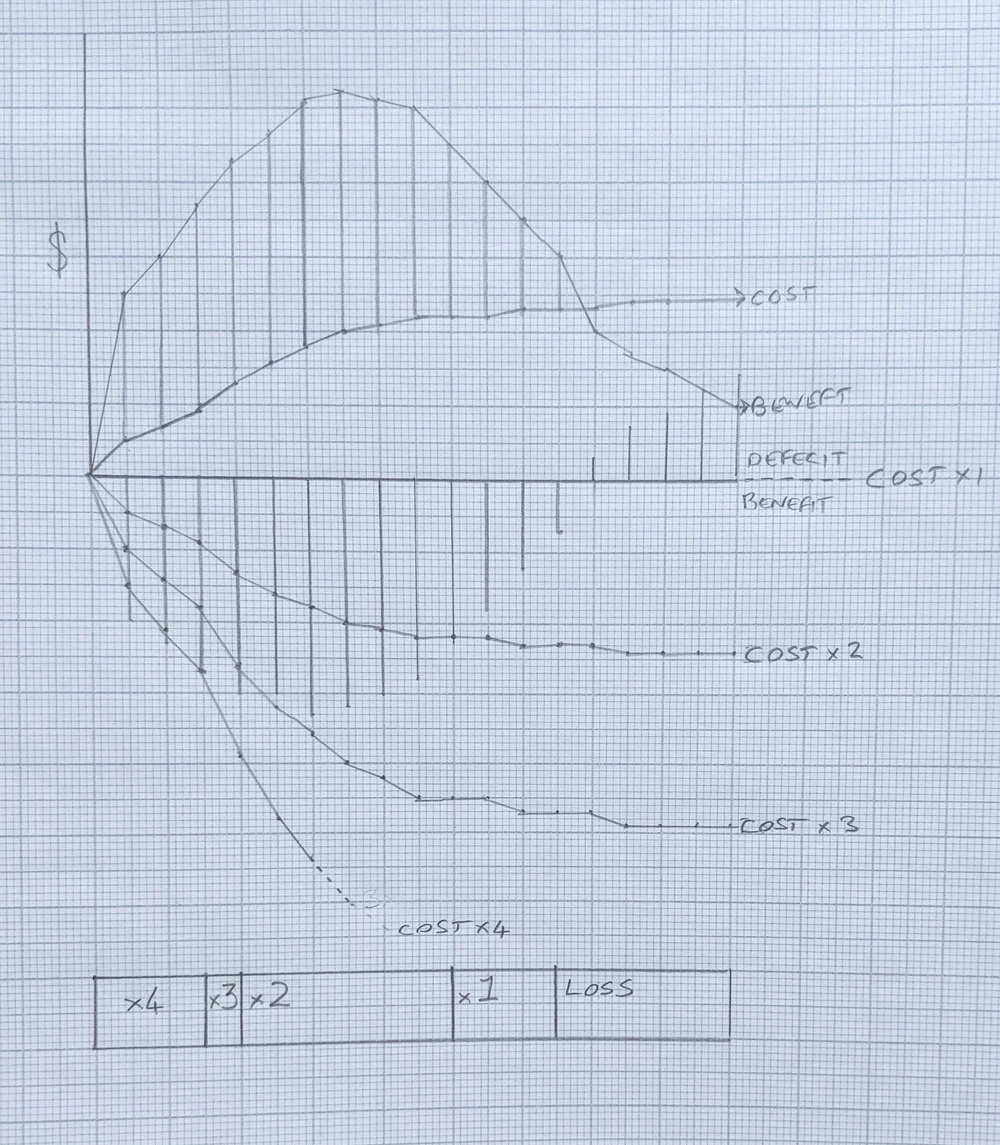 $
COST
BENEFIT
DEFECIT
COST x1
BENEFIT
COST x 2
COST x 3
COST x4
x4 x3 x2 x1 LOSS